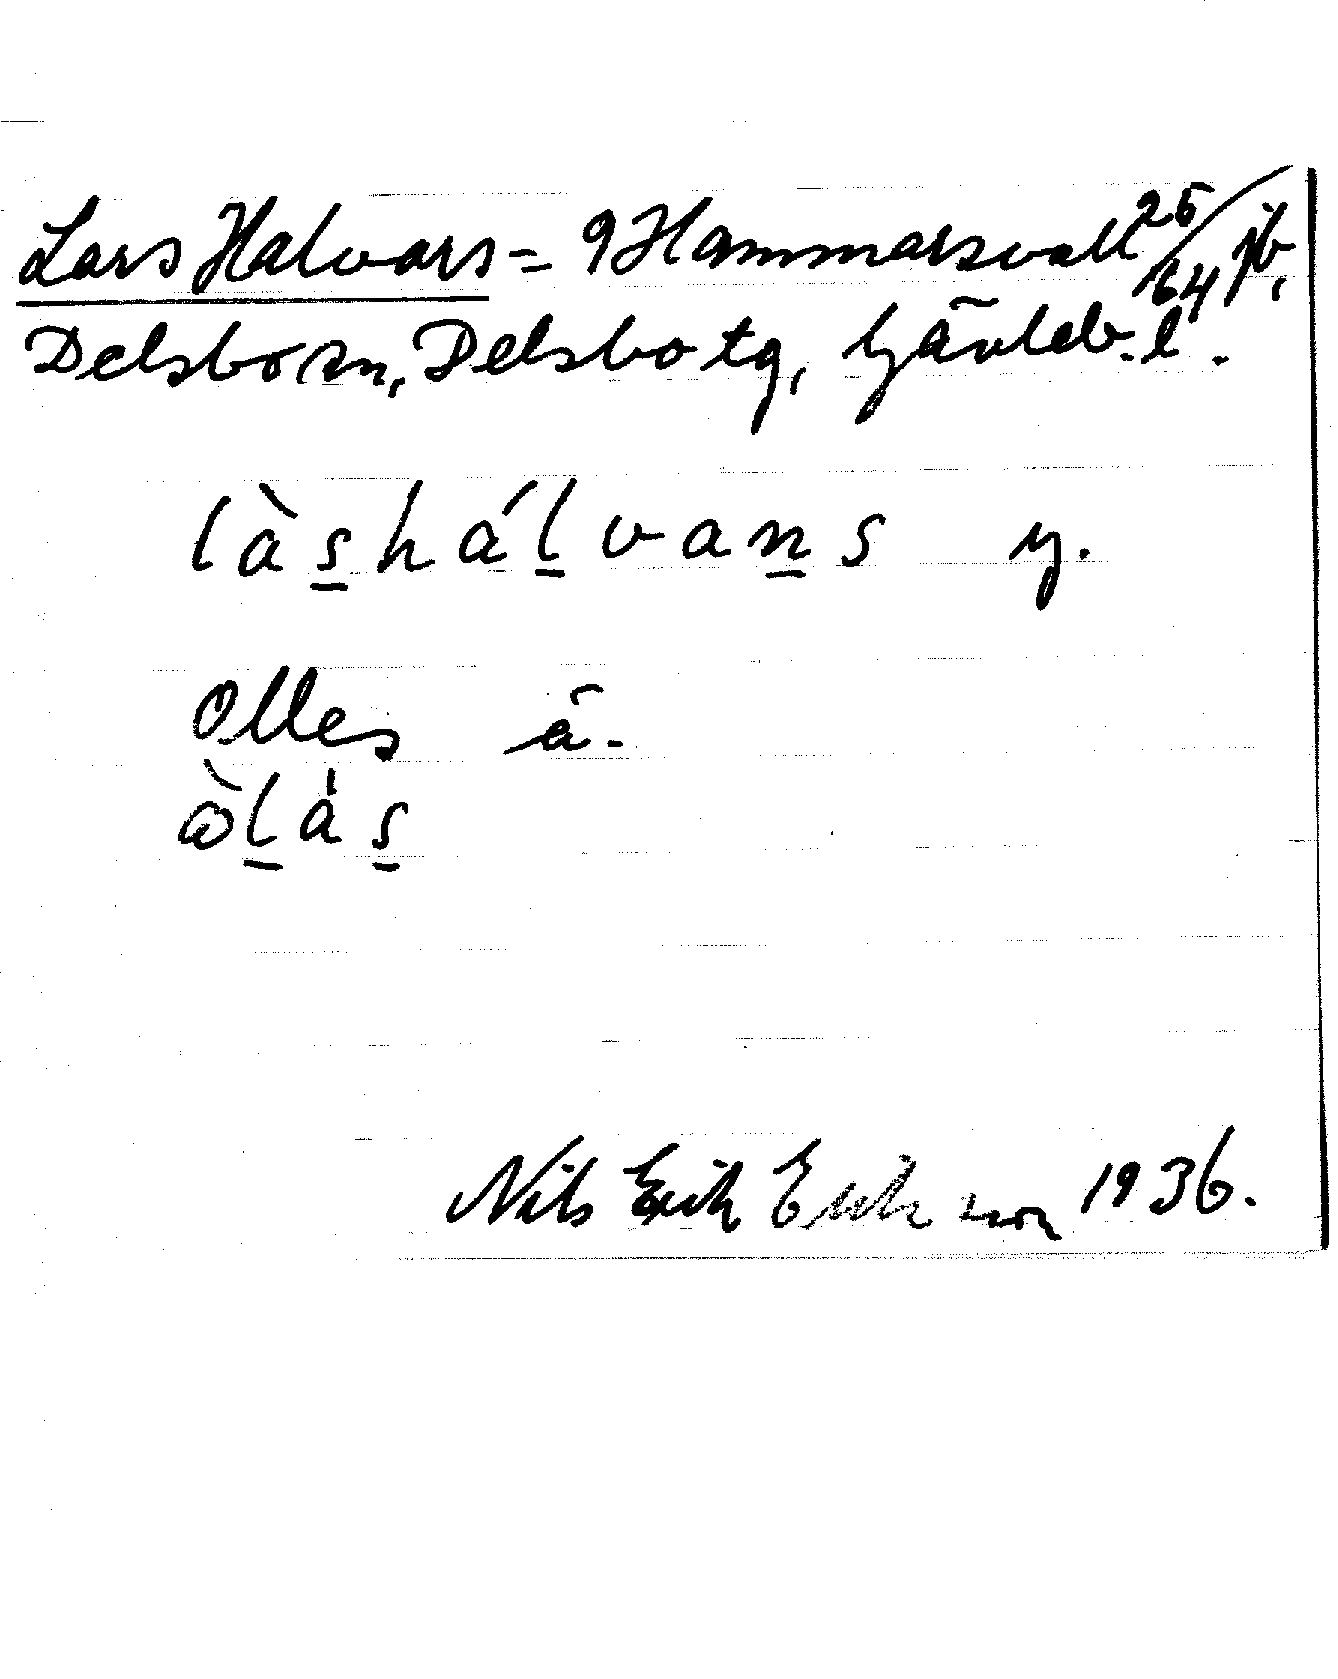 Lars Halvars = 9 Hammarsvall 25/64 jb,
Delsbo sn, Delsbo tg, Gävleb. l.
làs̱háḻvaṉs y.
Olles ä.
òḻàs̱
Nils Erik Eriksson 1936.